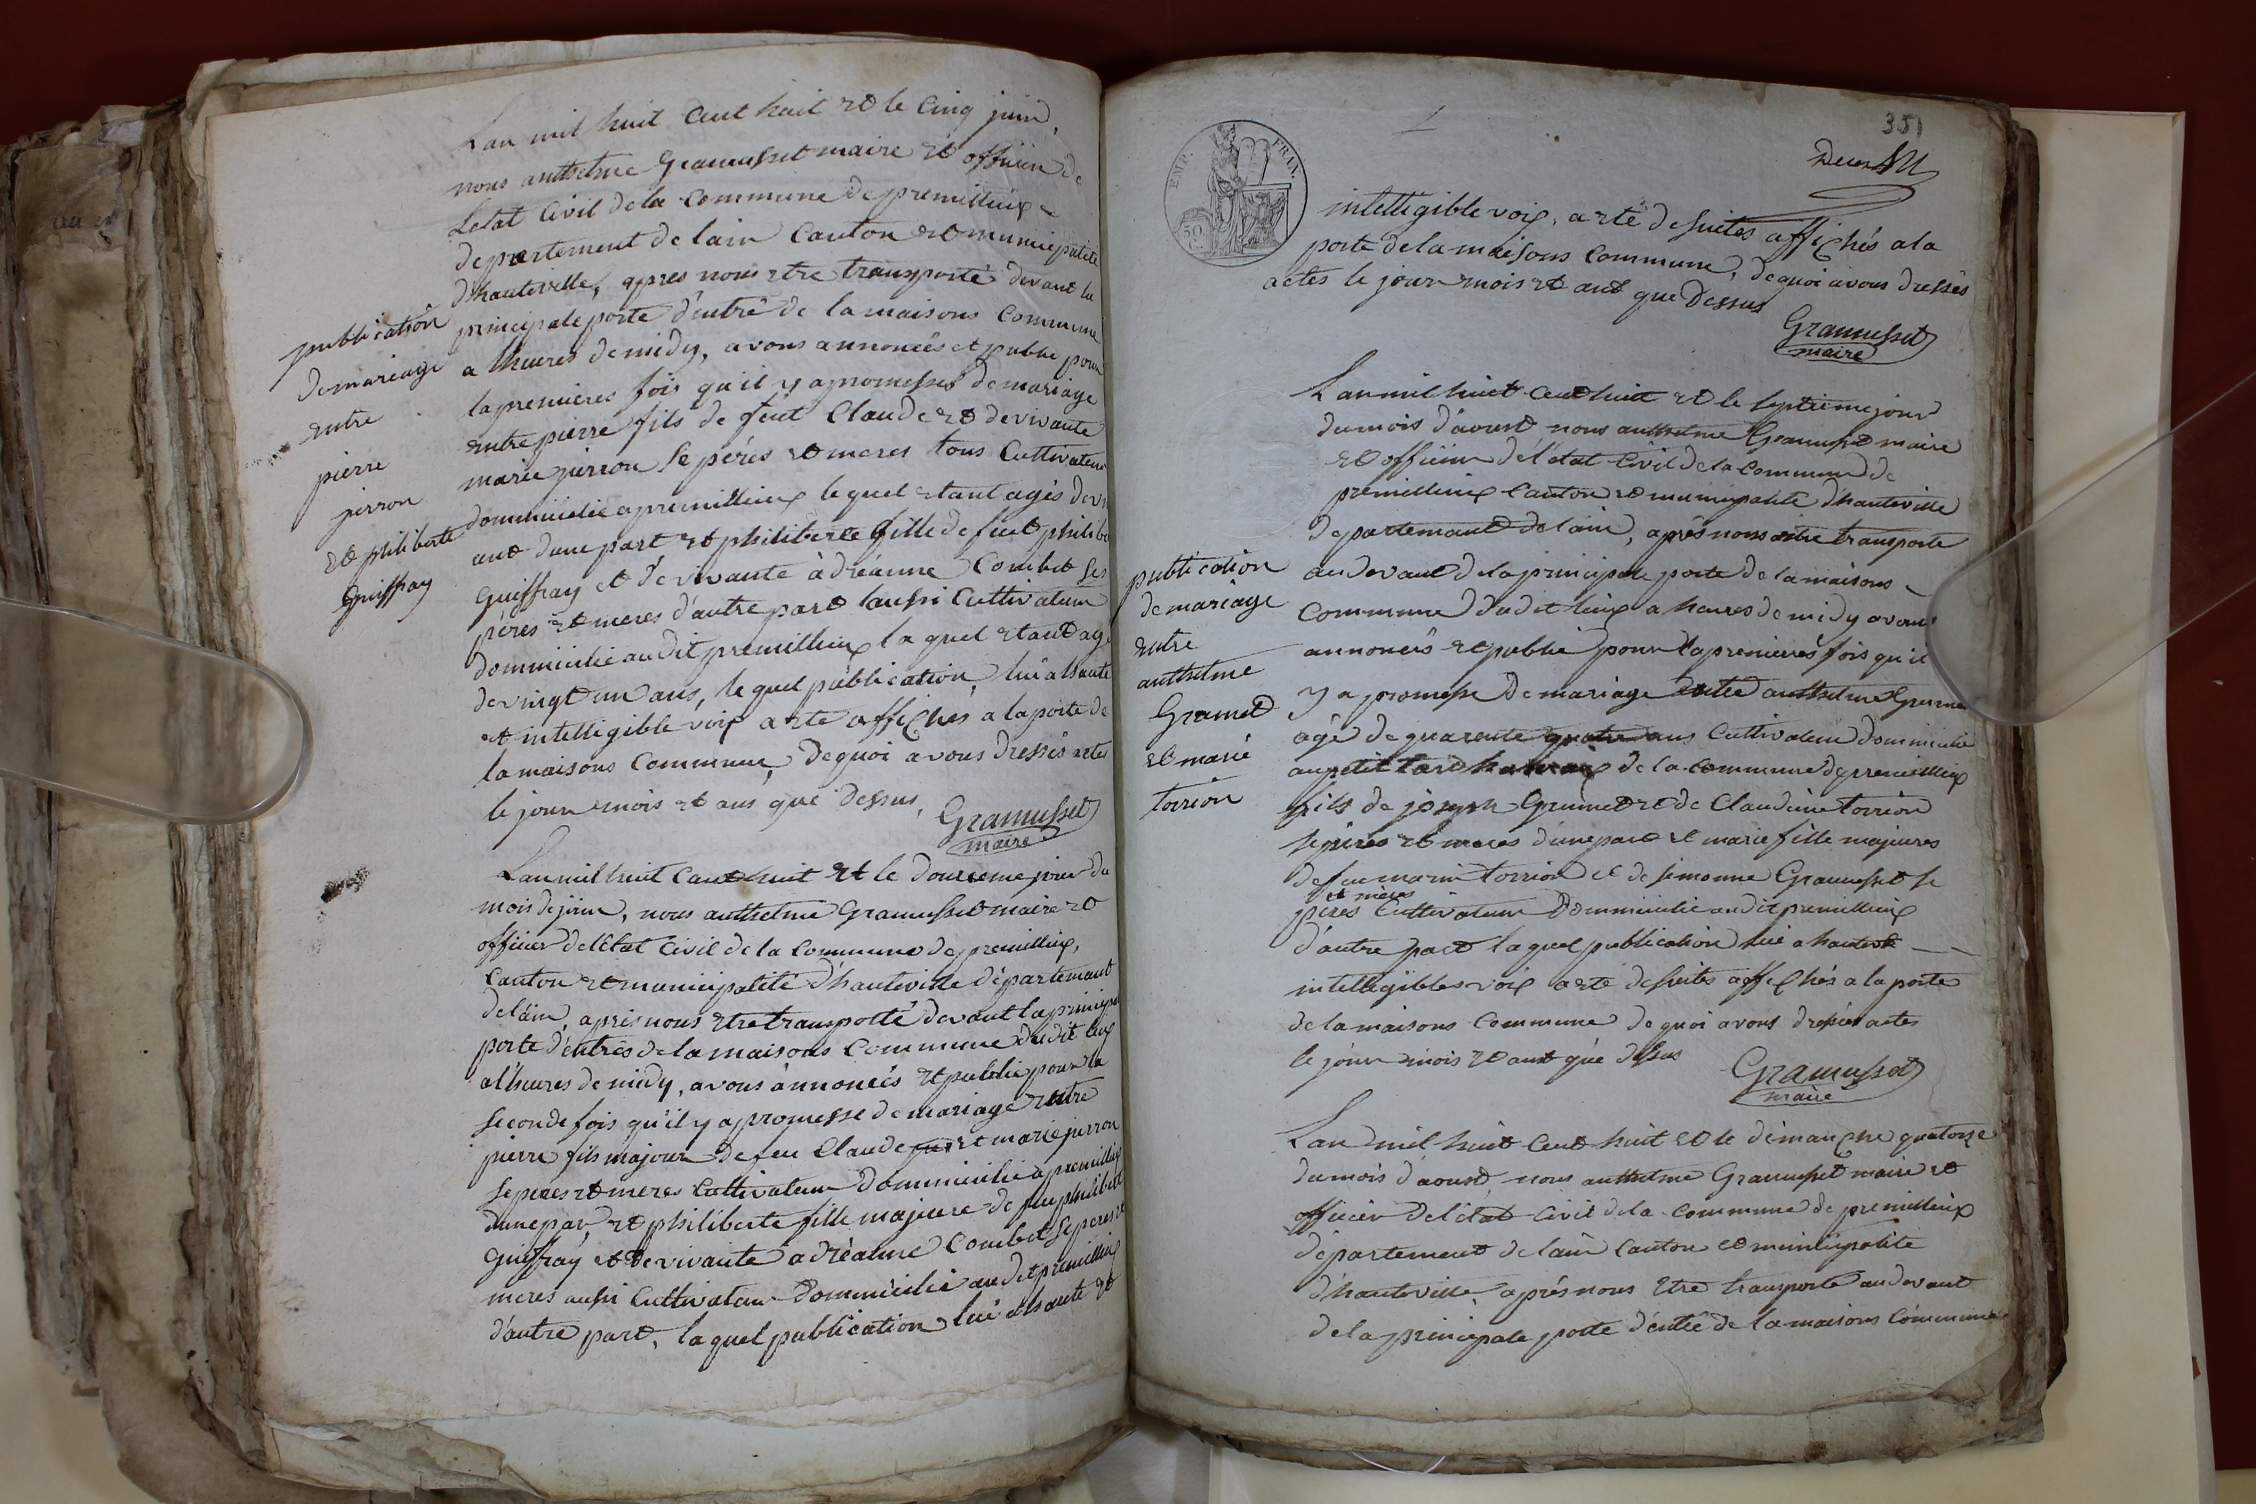 publication
de mariage
entre
pierre
jerron
et philiberte
Guiffray
Lan mil huit cent huit et le cinq juin,
nous anthelme Gramusset maire et officier de
Letat civil de la commune de premillieux
departement de lain canton et municipalité
d'hauteville, apres nous etre transporté devant la
principale porte d'entré de la maisons commune
a lheures de midy, avons annoncés et publié pour
la premieres fois qu'il y a promesses de mariage
entre pierre fils de feut Claude et de vivante
marie jerron se péres et meres tous Cultivateur
dommicilié a premillieux lequel etant agés de
ans dune part et philiberte fille de feut philibe
Guiffray et de vivante à dréanne Combet ses
péres et meres d'autre part aussi Cultivateur
dommicilié audit premillieux la quel etant agé
de vingt un ans, le quel publication lui a haute
et intelligible voix a eté affichés a la porte de
la maisons commune, de quoi avons dressés actes
le jour mois et ans que dessus,
Gramusset
maire
Lan mil huit cent huit et le douzieme jour du
mois de juin, nous anthelme Gramusset maire et
officier de l'Etat civil de la commune de premillieux,
canton et municipalité d'hauteville départemant
de lain, aprés nous etre transporté devant la principal
porte d'entrés de la maisons commune dudit lieux
a l'heures de midy, avons ánnoncés et publié pour la
seconde fois qu'il y a promesse de mariage entre
pierre fils majeur de feu Claude et marie jerron
se peres et meres Cultivateur dommicilié a premillieux
dune par, et philiberte fille majeure de feu philibert
Guiffray et de vivante a dréanne Combet se peres et
meres aussi Cultivateur dommicilié au dit premillieux
d'autre part, la quel publication lui a haute et
351
EMP. FRAN.
50 C.
intelligible voix, a eté de suites affichés a la
porte de la maisons commune, de quoi avons dressés
actes le jour mois et ans que dessus
Gramusset
maire
publication
de mariage
entre
anthelme
Grumet
et marie
torrion
Lan mil huit cent huit et le septieme jour
du mois d'aoust nous anthelme Gramusset maire
et officier dé l'état civil de la commune de
premillieux canton et municipalité d'hauteville
departemant de lain, aprés nous etre transporte
au devant de la principale porte de la maisons
commune dudit lieux a heures de midy avons
annoncés et publié pour la premieres fois qu'il
y a promesse de mariage entre anthelme Grume
agé de quarente quatre ans Cultivateur dommicilié
au petit de la commune de premillieux
fils de joseph Grumet et de Claudine torrion
se péres et meres d'une part et marie fille majeures
de feu marin torrion et de simonne Gramusset se
et mères
péres Cultivateur dommicilié au dit premillieux
d'autre part la quel publication lui a haute et
intelligibles voix a eté de suites affichés a la porte
de la maisons commune de quoi avons dressés actes
le jour mois et ans que dessus
Gramusset
maire
Lan mil huit cent huit et le dimanche quatorze
du mois d'aoust, nous anthelme Gramusset maire et
officier de l'état civil de la commune de premillieux
département de lain canton et municipalité
d'hauteville, aprés nous etre transporté au devant
de la principale porte d'entré de la maisons commune